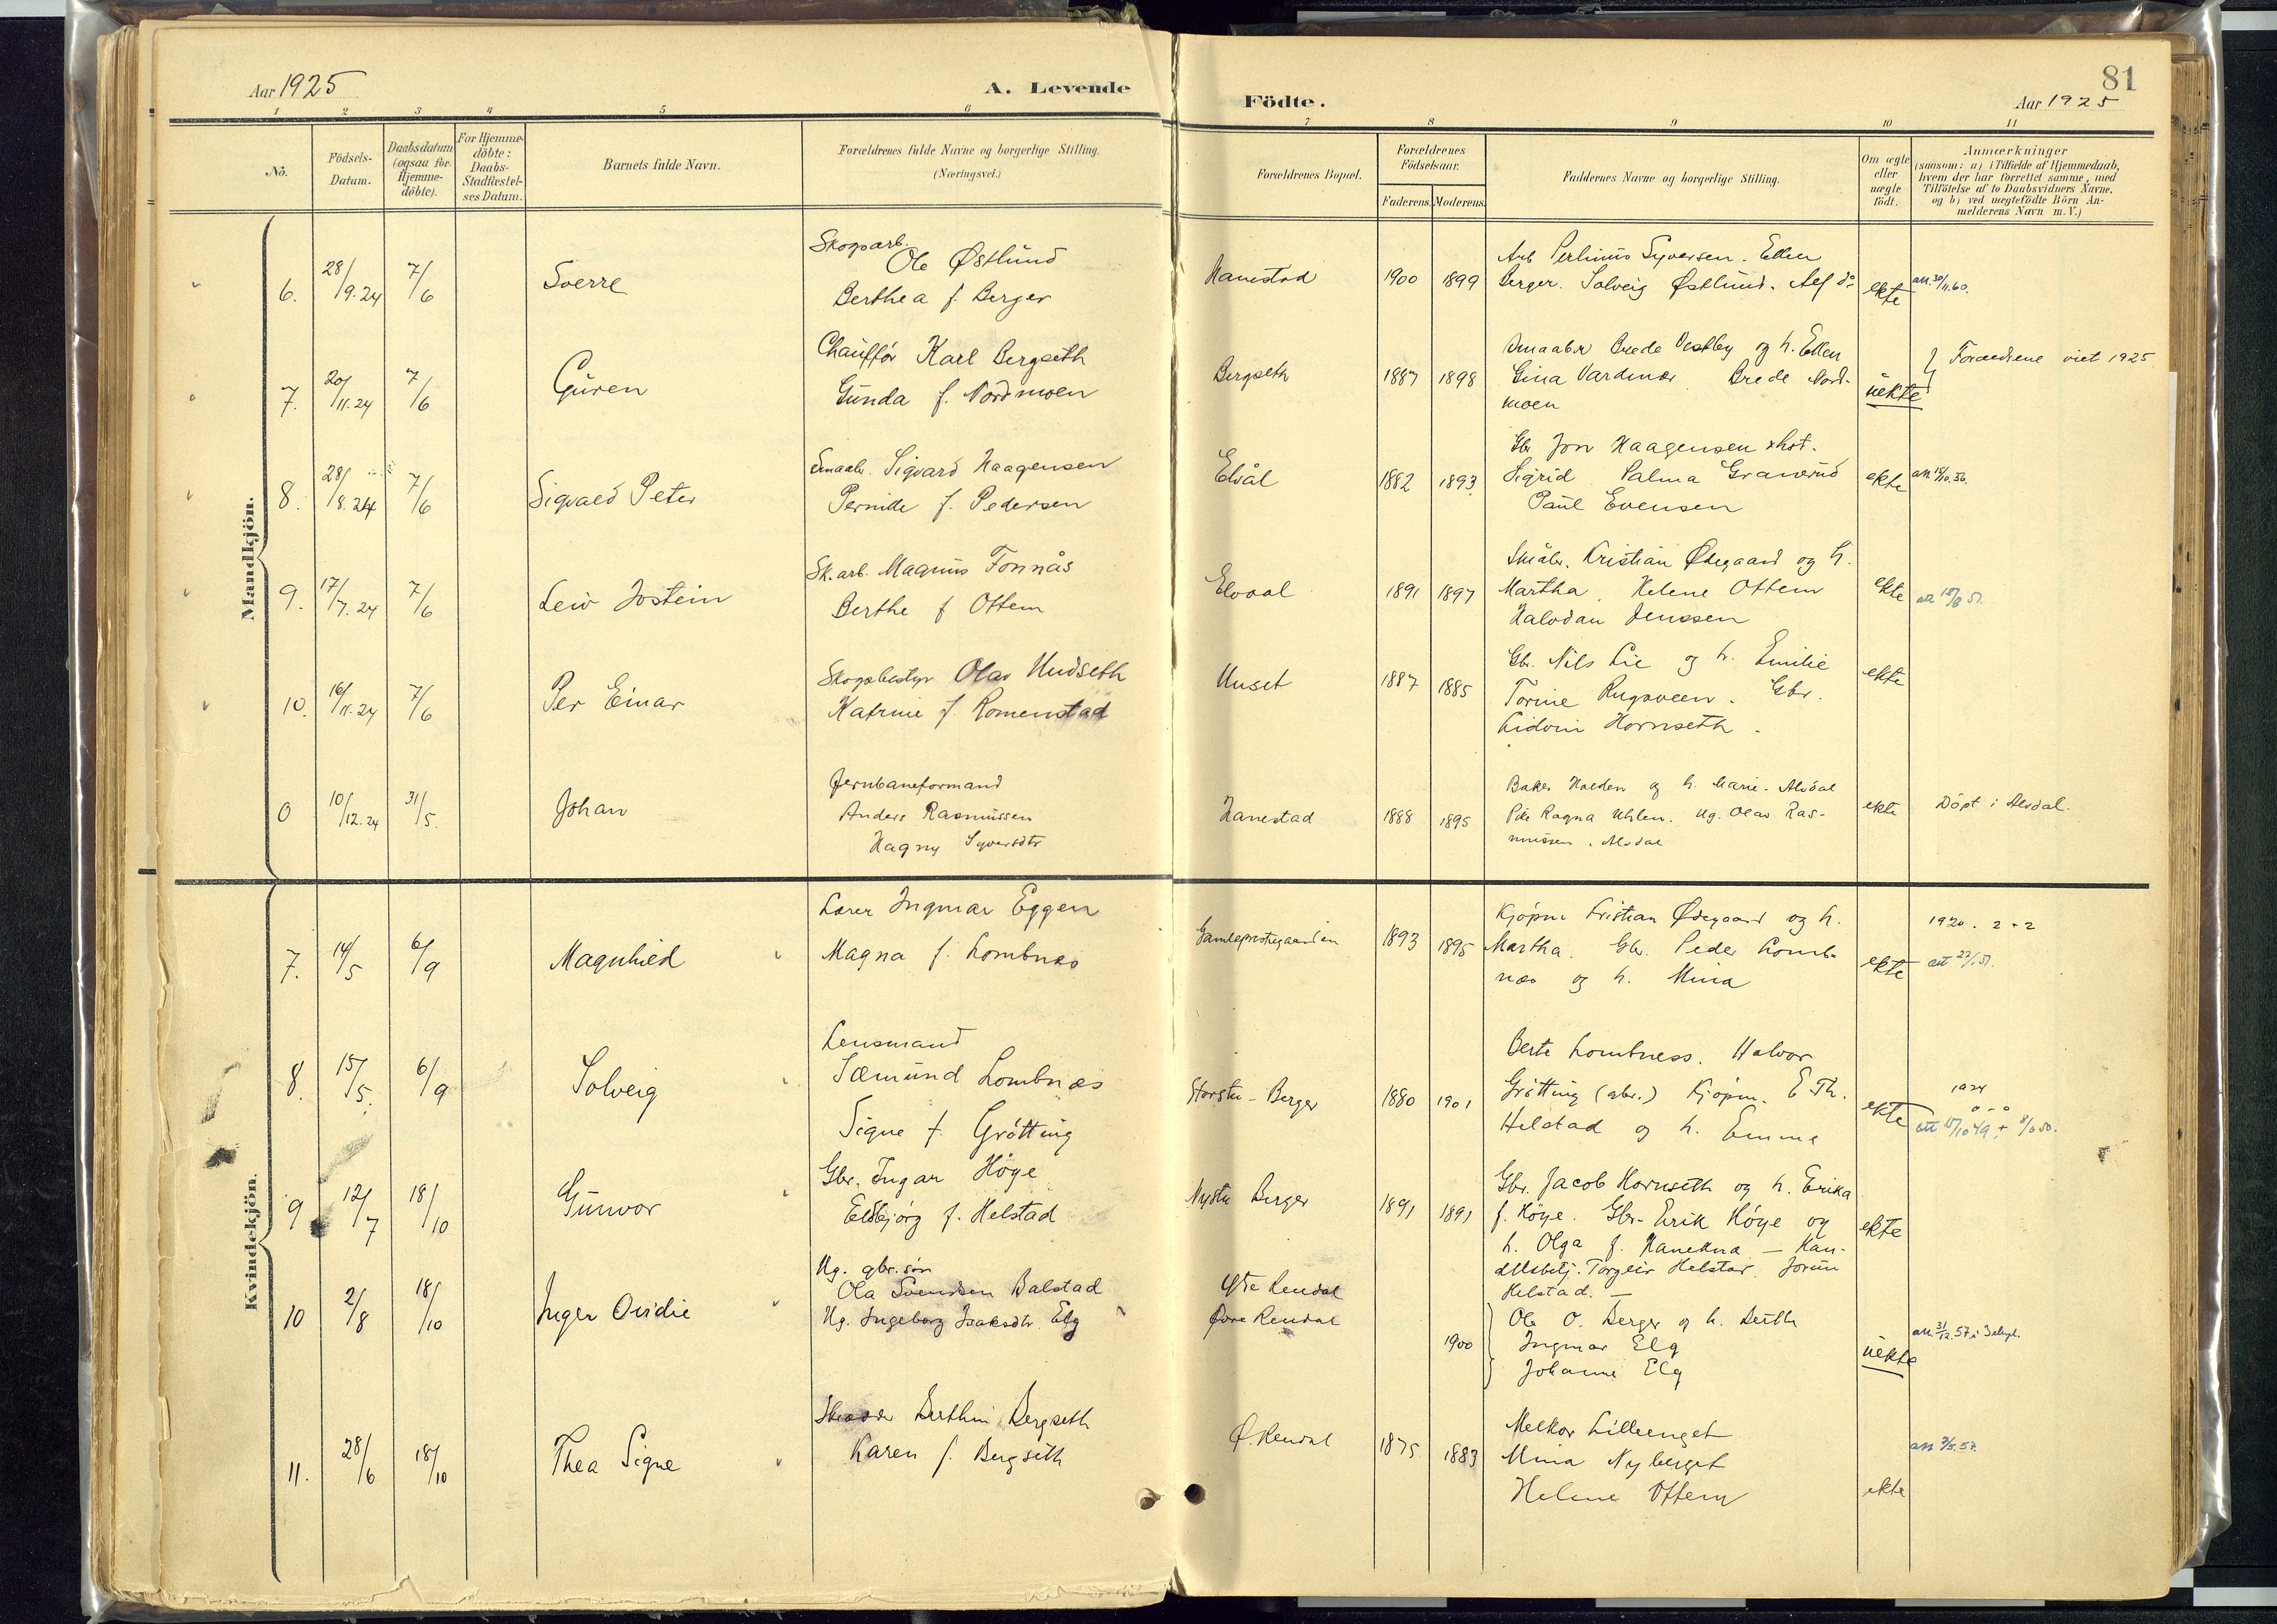 Aar 1925
A. Levende
Födte.
81
Aar 1925
1 2 3 4 5 6 7 8 9 10 11
No.
Födsels-
Datum.
Daabsdatum
(ogsaa for
Hjemme-
döbte).
For Hjemme-
döbte:
Daabs-
Stadfæstel-
ses Datum.
Barnets fulde Navn.
Forældrenes fulde Navne og borgerlige Stilling.
(Næringsvei.)
Forældrenes Bopæl.
Forældrenes
Födselsaar.
Faderens. Moderens.
Faddernes Navne og borgerlige Stilling.
Om ægte
eller
uægte
födt.
Anmærkninger
(saasom: a) i Tilfælde af Hjemmedaab,
hvem der har forrettet samme, med
Tilföielse af to Daabsvidners Navne.
og b) ved uægtefödte Börn An-
melderens Navn m. V.)
Mandkjön.
6. 28/9.24 7/6 Sverre
Skogsarb.
Ole Østlund
Berthea f. Berger
Hanestad 1900 1899
Arb Perlinus Syversen. Ellen
Berger. Solveig Østlund. Alf do
ekte
att. 30/11.60.
7. 20/11.24 7/6 Guren
Chauffór Karl Bergseth
Gunda f. Nordmoen
Bergseth 1887 1898
Smaabr Brede Vestby og h. Ellen
Gina Vardmoe Brede Nord-
moen
uekte
Foreldrene viet 1925
8. 28/8.24 7/6 Sigvald Peter
Smaabr. Sigvard Haagensen
Pernille f. Pedersen
Elvål 1882 1893
Gbr Jon Haagensen
Sigrid Palma Granerud
Paul Evensen
ekte
9. 17/7.24 7/6 Leiv Jostein
Sk.arb. Magnus Fonnås
Berthe f Ottem
Elvaal 1891 1897
Småbr. Kristian Ødegaard og h.
Martha. Helene Ottem
Halvdan Jenssen
ekte
10. 16/11.24 7/6 Per Einar
Skogsbestyr Olav Hudseth
Katrine f. Romenstad
Unset 1887 1885
Gbr. Nils Lie og h. Emilie
Torine Rugsveen. Gbr.
Lidvin Hornseth.
ekte
0 10/12.24 31/5. Johan
Jernbaneformand
Anders Rasmussen
Hagny Syversdtr
Hanestad 1888 1895
Baker Holden og h. Marie. Alvdal
Pike Ragna Uhlen. Ug. Olav Ras-
mussen. Alvdal
ekte
Döpt i Alvdal.
Kvindekjön.
7. 14/5 6/9 Magnhild
Lærer Ingmar Eggen
Magna f. Lombnæs
Gamleprestegaarden 1893 1895
Kjöpm Kristian Ødegaard og h.
Martha. Gbr. Peder Lomb-
næs og h. Mina
ekte
1920. 2-2
att 22/1.51.
8. 15/5. 6/9 Solveig
Lensmand
Sæmund Lombnæs
Signe f. Gråtting
Storstu-Berger 1880 1901
Berte Lombness. Halvor
Gråtting (gbr.) Kjöpm. E Th.
Helstad og h. Emma
ekte
0-0
9 12/7 18/10 Gunvor
Gbr. Ingar Höye
Eldbjörg f. Helstad
Nystu Berger 1891 1891
Gbr. Jacob Hornseth og h. Erika
f. Höye. Gbr. Erik Höye og
h. Olga f. Haneknæ - Han-
delsbetj. Torgeir Helstad Jorun
Helstad.
ekte
10 2/8 18/10 Inger Ovidie
Ug. gbr.sön
Ola Svendsen Balstad
Ug. Ingeborg Isaksdtr. Elg
Ytre Rendal
Øvre Rendal
1900
Ole O. Berger og h. Berth
Ingmar Elg
Johanne Elg
uekte
11. 28/6 18/10 Thea Signe
Berthin Bergseth
Karen f. Bergseth
Ø. Rendal 1875 1883
Melkor Lilleenget
Mina Nyberget
Helene Ottem
ekte